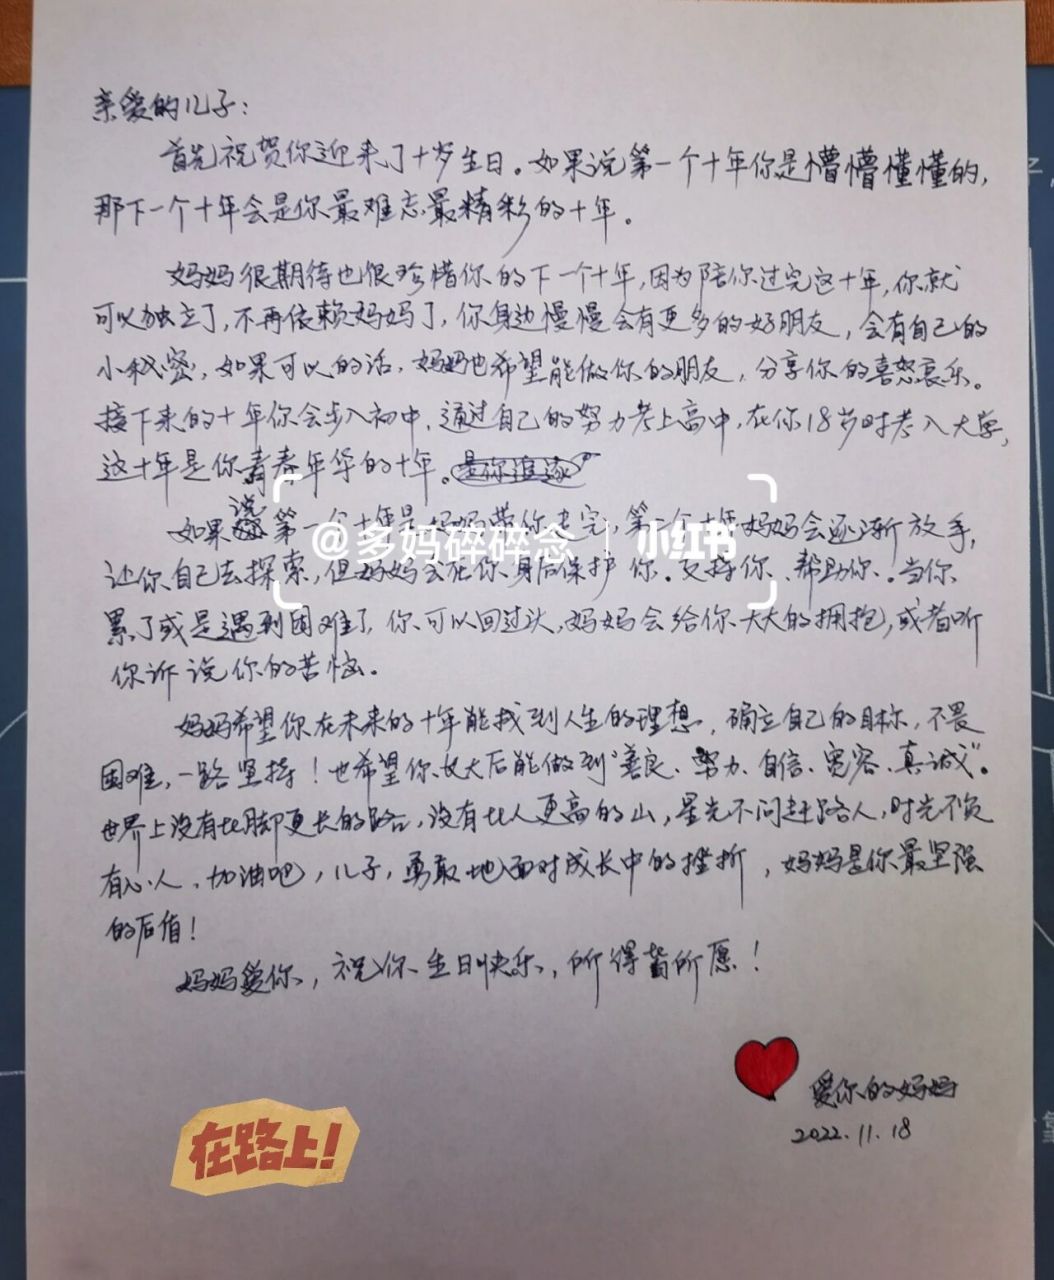 亲爱的儿子:
首先祝贺你迎来了十岁生日。如果说第一个十年你是懵懵懂懂的,
那下一个十年会是你最难忘最精彩的十年。
妈妈很期待也很珍惜你的下一个十年,因为陪你过完这十年,你就
可以独立了,不再依赖妈妈了,你身边慢慢会有更多的好朋友,会有自己的
小秘密,如果可以的话,妈妈也希望能做你的朋友,分享你的喜怒哀乐。
接下来的十年你会步入初中,通过自己的努力考上高中,在你18岁时考入大学,
这十年是你青春年华的十年。
如果说第一个十年是妈妈带你走完,第二个十年妈妈会逐渐放手,
@多妈碎碎念 小红书
让你自己去探索,但妈妈会在你身后保护你、支持你、帮助你、当你
累了或是遇到困难了,你可以回过头,妈妈会给你大大的拥抱,或者听
你诉说你的苦恼。
妈妈希望你在未来的十年能找到人生的理想,确立自己的目标,不畏
困难,一路坚持!也希望你长大后能做到“善良、努力、自信、宽容、真诚”。
世界上没有比脚更长的路,没有比人更高的山,星光不问赶路人,时光不负
有心人,加油吧,儿子,勇敢地面对成长中的挫折,妈妈是你最坚强
的后盾!
妈妈爱你,祝你生日快乐,所得皆所愿!
爱你的妈妈
2022.11.18
在路上!